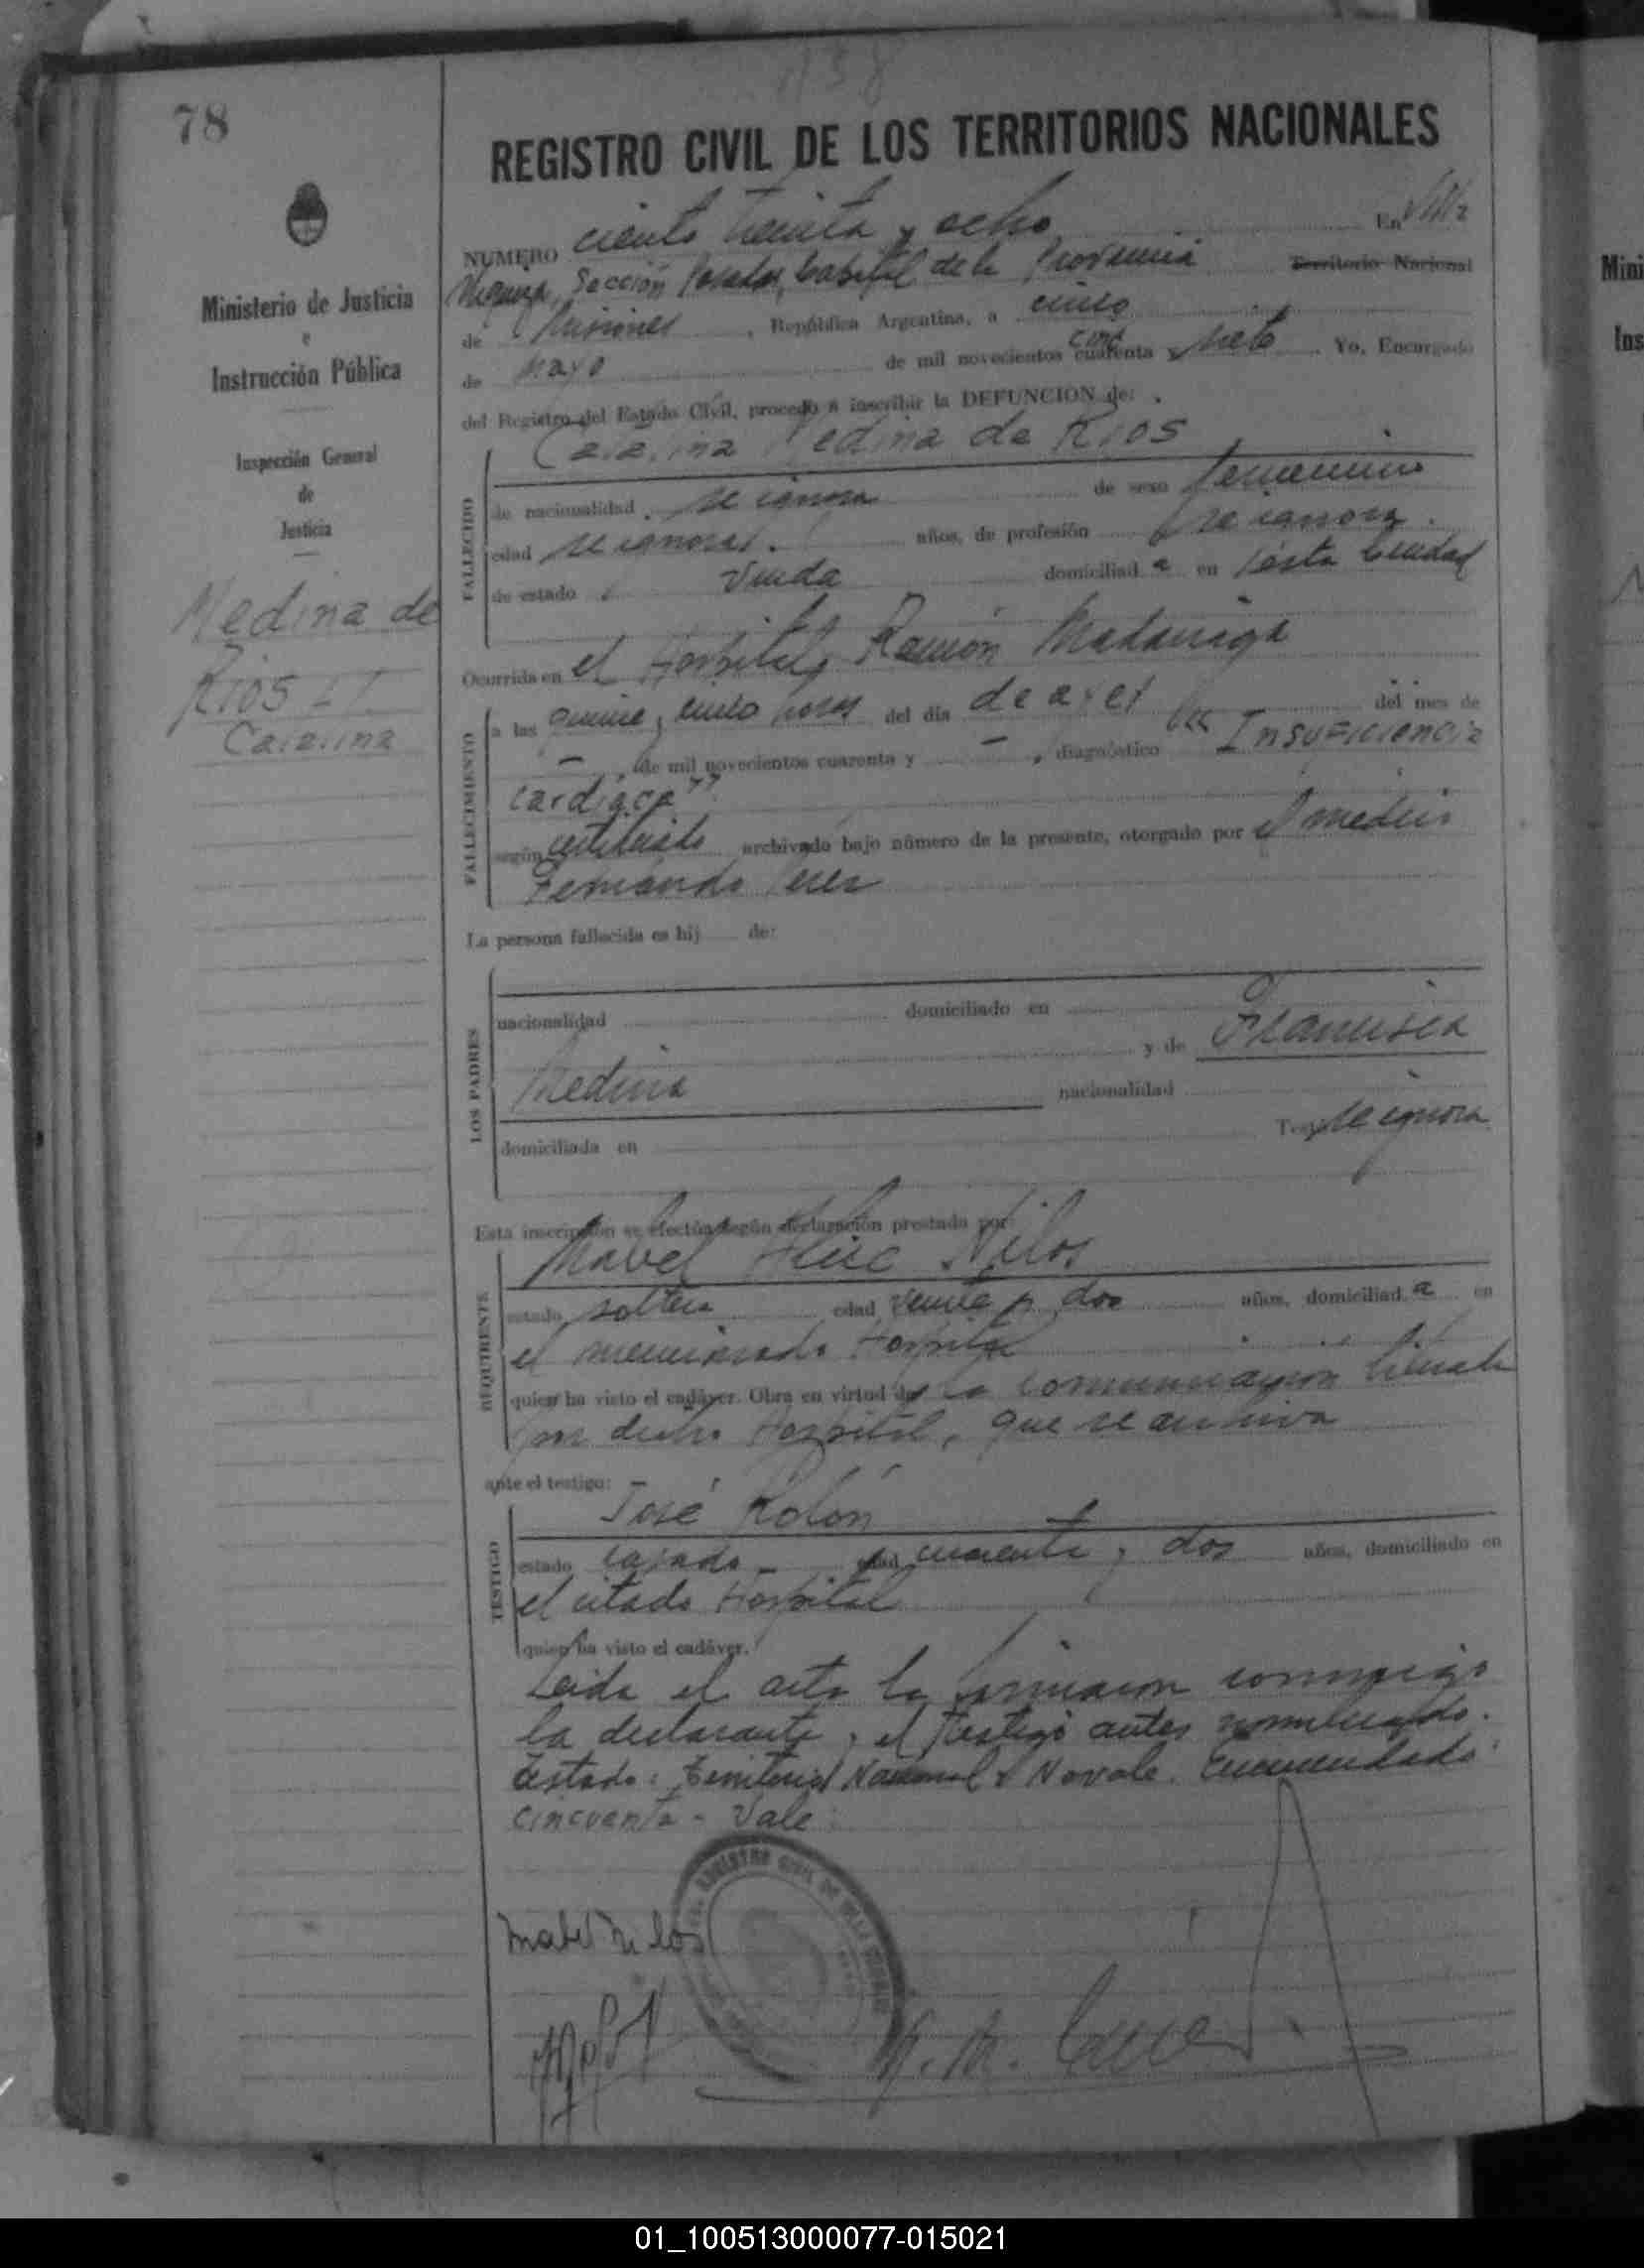 138
78
REGISTRO CIVIL DE LOS TERRITORIOS NACIONALES
Ministerio de Justicia
e
Instrucción Pública
Inspección General
de
Justicia
Medina de
Rios
Catalina
NUMERO ciento treinta y ocho En Villa
Sección Posadas, Capital de la Provincia Territorio Nacional
de Misiones, República Argentina, a cinco
de Mayo de mil novecientos cuarenta y siete. Yo, Encargado
del Registro del Estado Civil, procedo a inscribir la DEFUNCION de:
Catalina Medina de Rios
FALLECIDO
de nacionalidad se ignora de sexo femenino
edad se ignora. años, de profesión se ignora.
de estado Viuda domiciliad a en esta Ciudad
Ocurrida en el Hospital Ramón Madariaga
FALLECIMIENTO
a las quince y cinco horas del día de ayer del mes de
— de mil novecientos cuarenta y —, diagnóstico "Insuficiencia
cardiaca"
según certificado archivado bajo número de la presente, otorgado por el médico
Fernando
La persona fallecida es hij de:
LOS PADRES
nacionalidad domiciliado en
y de Francisca
Medina nacionalidad
domiciliada en se ignora
Esta inscripción se efectúa según declaración prestada por:
Mabel Nilos
REQUIRENTE
estado soltera edad veinte y dos años, domiciliad a en
el mencionado Hospital
quien ha visto el cadáver. Obra en virtud de la comunicación librada
por dicho Hospital, que se archiva
ante el testigo:
José Rolón
TESTIGO
estado casado edad cuarenta y dos años, domiciliado en
el citado Hospital
quien ha visto el cadáver.
Leida el acta la firmaron conmigo
la declarante y el testigo antes nombrado.
Testado: Territorio Nacional No vale. Enmendado:
cincuenta - Vale
Mabel Nilos
REGISTRO CIVIL DE
01_100513000077-015021